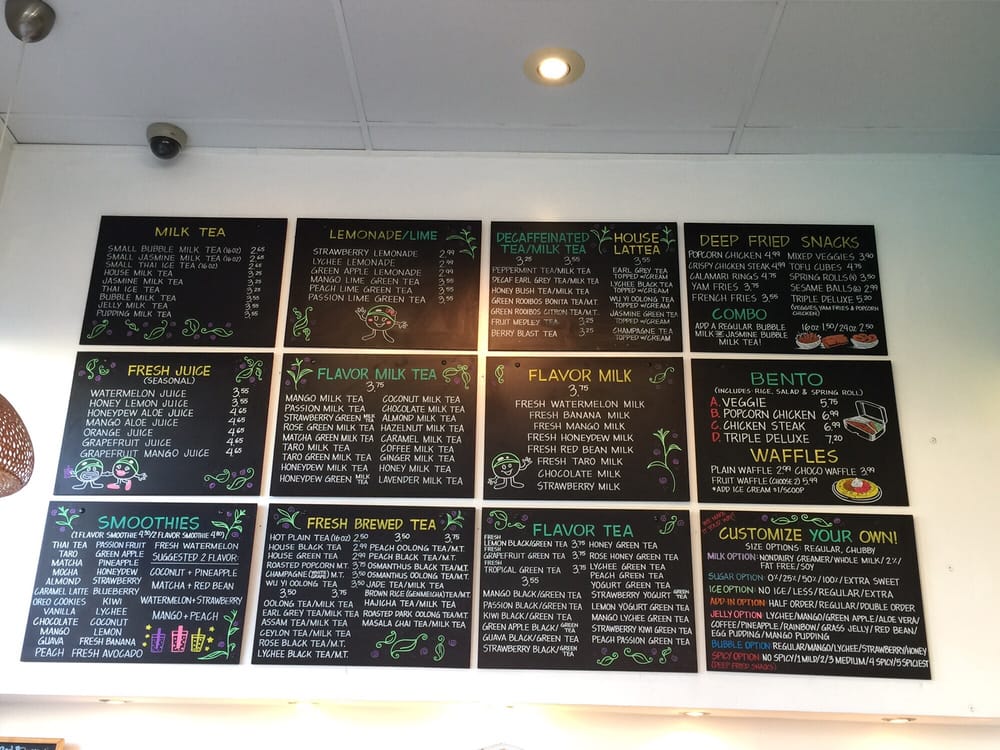 MILK TEA
SMALL BUBBLE MILK TEA (16oz) 2.65
SMALL JASMINE MILK TEA (16oz) 2.65
SMALL THAI ICE TEA (16oz) 2.65
HOUSE MILK TEA 3.25
JASMINE MILK TEA 3.25
THAI ICE TEA 3.25
BUBBLE MILK TEA 3.55
JELLY MILK TEA 3.55
PUDDING MILK TEA 3.55
LEMONADE/LIME
STRAWBERRY LEMONADE 2.99
LYCHEE LEMONADE 2.99
GREEN APPLE LEMONADE 2.99
MANGO LIME GREEN TEA 3.55
PEACH LIME GREEN TEA 3.55
PASSION LIME GREEN TEA 3.55
DECAFFEINATED
TEA/MILK TEA
3.25 3.55
PEPPERMINT TEA/MILK TEA
DECAF EARL GREY TEA/MILK TEA
HONEY BUSH TEA/MILK TEA
GREEN ROOIBOS BONITA TEA/M.T.
GREEN ROOIBOS CITRON TEA/M.T.
FRUIT MEDLEY TEA 3.25
BERRY BLAST TEA 3.25
HOUSE
LATTEA
3.55
EARL GREY TEA
TOPPED W/CREAM
LYCHEE BLACK TEA
TOPPED W/CREAM
WU YI OOLONG TEA
TOPPED W/CREAM
JASMINE GREEN TEA
TOPPED W/CREAM
CHAMPAGNE TEA
TOPPED W/CREAM
DEEP FRIED SNACKS
POPCORN CHICKEN 4.99
CRISPY CHICKEN STEAK 4.99
CALAMARI RINGS 4.75
YAM FRIES 3.75
FRENCH FRIES 3.55
MIXED VEGGIES 3.90
TOFU CUBES 4.75
SPRING ROLLS (4) 3.50
SESAME BALLS (6) 2.99
TRIPLE DELUXE 5.20
(VEGGIES, YAM FRIES & POPCORN
CHICKEN)
COMBO
ADD A REGULAR BUBBLE
MILK OR JASMINE BUBBLE
MILK TEA!
16oz 1.50/24oz 2.50
FRESH JUICE
(SEASONAL)
WATERMELON JUICE 3.55
HONEY LEMON JUICE 3.55
HONEYDEW ALOE JUICE 4.65
MANGO ALOE JUICE 4.65
ORANGE JUICE 4.65
GRAPEFRUIT JUICE 4.65
GRAPEFRUIT MANGO JUICE 4.65
FLAVOR MILK TEA
3.75
MANGO MILK TEA
PASSION MILK TEA
STRAWBERRY GREEN MILK TEA
ROSE GREEN MILK TEA
MATCHA GREEN MILK TEA
TARO MILK TEA
TARO GREEN MILK TEA
HONEYDEW MILK TEA
HONEYDEW GREEN MILK TEA
COCONUT MILK TEA
CHOCOLATE MILK TEA
ALMOND MILK TEA
HAZELNUT MILK TEA
CARAMEL MILK TEA
COFFEE MILK TEA
GINGER MILK TEA
HONEY MILK TEA
LAVENDER MILK TEA
FLAVOR MILK
3.75
FRESH WATERMELON MILK
FRESH BANANA MILK
FRESH MANGO MILK
FRESH HONEYDEW MILK
FRESH RED BEAN MILK
FRESH TARO MILK
CHOCOLATE MILK
STRAWBERRY MILK
BENTO
(INCLUDES RICE, SALAD & SPRING ROLL)
A. VEGGIE 5.75
B. POPCORN CHICKEN 6.99
C. CHICKEN STEAK 6.99
D. TRIPLE DELUXE 7.20
WAFFLES
PLAIN WAFFLE 2.99 CHOCO WAFFLE 3.99
FRUIT WAFFLE (CHOOSE 2) 5.99
*ADD ICE CREAM $1/SCOOP
SMOOTHIES
(1 FLAVOR SMOOTHIE 4.35/2 FLAVOR SMOOTHIE 4.80)
THAI TEA
TARO
MATCHA
MOCHA
ALMOND
CARAMEL LATTE
OREO COOKIES
VANILLA
CHOCOLATE
MANGO
GUAVA
PEACH
PASSION FRUIT
GREEN APPLE
PINEAPPLE
HONEYDEW
STRAWBERRY
BLUEBERRY
KIWI
LYCHEE
COCONUT
LEMON
FRESH BANANA
FRESH AVOCADO
FRESH WATERMELON
SUGGESTED 2 FLAVOR:
COCONUT + PINEAPPLE
MATCHA + RED BEAN
WATERMELON + STRAWBERRY
MANGO + PEACH
FRESH BREWED TEA
HOT PLAIN TEA (16oz) 2.50
HOUSE BLACK TEA 2.99
HOUSE GREEN TEA 2.99
ROASTED POPCORN M.T. 3.50
CHAMPAGNE M.T. 3.50
WU YI OOLONG TEA 3.50
3.50 3.75
OOLONG TEA/MILK TEA
EARL GREY TEA/MILK TEA
ASSAM TEA/MILK TEA
CEYLON TEA/MILK TEA
ROSE BLACK TEA/M.T.
LYCHEE BLACK TEA/M.T.
3.50 3.75
PEACH OOLONG TEA/M.T.
PEACH BLACK TEA/M.T.
OSMANTHUS BLACK TEA/M.T.
OSMANTHUS OOLONG TEA/M.T.
JADE TEA/MILK TEA
BROWN RICE (GENMEICHA) TEA/M.T.
HAJICHA TEA/MILK TEA
ROASTED DARK OOLONG TEA/M.T.
MASALA CHAI TEA/MILK TEA
FLAVOR TEA
FRESH
LEMON BLACK/GREEN TEA 3.75
FRESH
GRAPEFRUIT GREEN TEA 3.75
FRESH
TROPICAL GREEN TEA 3.75
3.55
MANGO BLACK/GREEN TEA
PASSION BLACK/GREEN TEA
KIWI BLACK/GREEN TEA
GREEN APPLE BLACK/GREEN TEA
GUAVA BLACK/GREEN TEA
STRAWBERRY BLACK/GREEN TEA
HONEY GREEN TEA
ROSE HONEY GREEN TEA
LYCHEE GREEN TEA
PEACH GREEN TEA
YOGURT GREEN TEA
STRAWBERRY YOGURT GREEN TEA
LEMON YOGURT GREEN TEA
MANGO LYCHEE GREEN TEA
STRAWBERRY KIWI GREEN TEA
PEACH PASSION GREEN TEA
CUSTOMIZE YOUR OWN!
SIZE OPTIONS: REGULAR, CHUBBY
MILK OPTION: NONDAIRY CREAMER/WHOLE MILK/2%/
FAT FREE/SOY
SUGAR OPTION: 0%/25%/50%/100%/EXTRA SWEET
ICE OPTION: NO ICE/LESS/REGULAR/EXTRA
ADD-IN OPTION: HALF ORDER/REGULAR/DOUBLE ORDER
JELLY OPTION: LYCHEE/MANGO/GREEN APPLE/ALOE VERA/
COFFEE/PINEAPPLE/RAINBOW/GRASS JELLY/RED BEAN/
EGG PUDDING/MANGO PUDDING
BUBBLE OPTION: REGULAR/MANGO/LYCHEE/STRAWBERRY/HONEY
SPICY OPTION: NO SPICY/1 MILD/2/3 MEDIUM/4 SPICY/5 SPICIEST
(DEEP FRIED SNACKS)